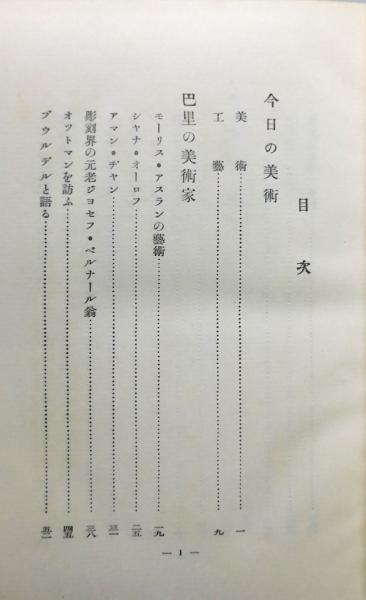 目次
今日の美術
美術……一
工藝……九
巴里の美術家
モーリス・アスランの藝術……一九
シヤナ・オーロフ……二五
アマン・ヂヤン……三一
彫刻界の元老ジヨセフ・ベルナール翁……三八
オツトマンを訪ふ……四五
ブウルデルと語る……五二
— 1 —